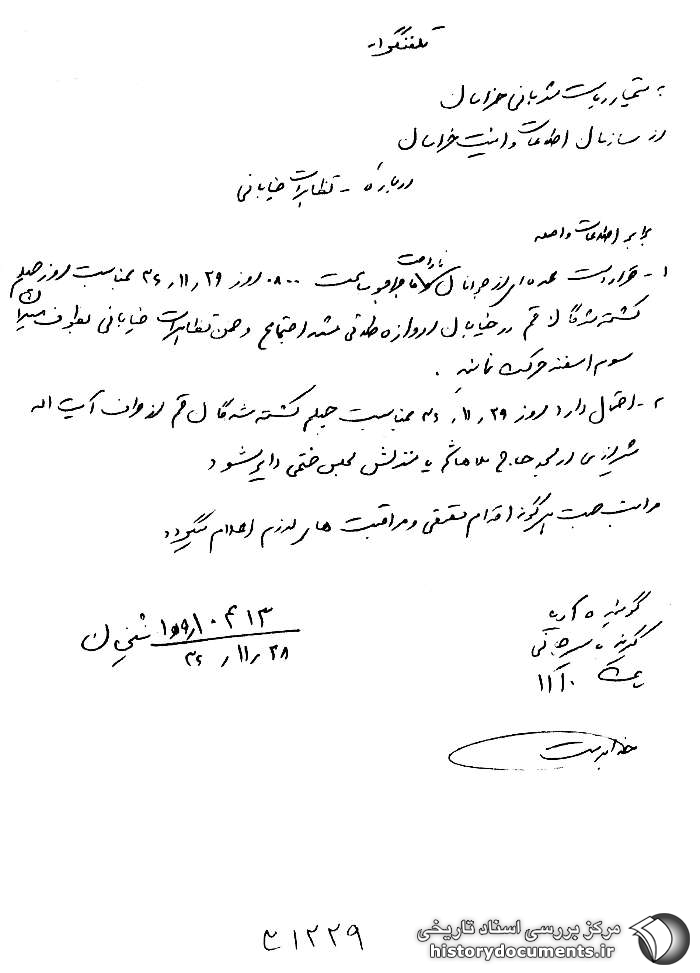 تلفنگرام
به تیمسار ریاست شهربانی خراسان
از سازمان اطلاعات و امنیت خراسان
درباره - تظاهرات خیابانی
برابر اطلاعات واصله
۱- قرار است عده‌ای از جوانان ناراحت ساعت ۰۸۰۰ روز ۲۹/۱۱/۳۶ بمناسبت روز چهلم
کشته شدگان قم در خیابان دروازه طلائی مشهد اجتماع و ضمن تظاهرات خیابانی بطرف میدان
سوم اسفند حرکت نمایند.
۲- احتمال دارد روز ۲۹/۱۱/۳۶ بمناسبت چهلم کشته شدگان قم از طرف آیت اله
شیرازی در مسجد حاج ملاهاشم یا منزلش مجلس ختمی دایر شود
مراتب جهت هرگونه اقدام مقتضی و مراقبت های لازم اعلام میگردد
گوینده
گیرنده
ساعت
۱۰۴۱۳/۹۵۱
۲۸/۱۱/۳۶
۱۲۲۹ع
مرکز بررسی اسناد تاریخی
historydocuments.ir